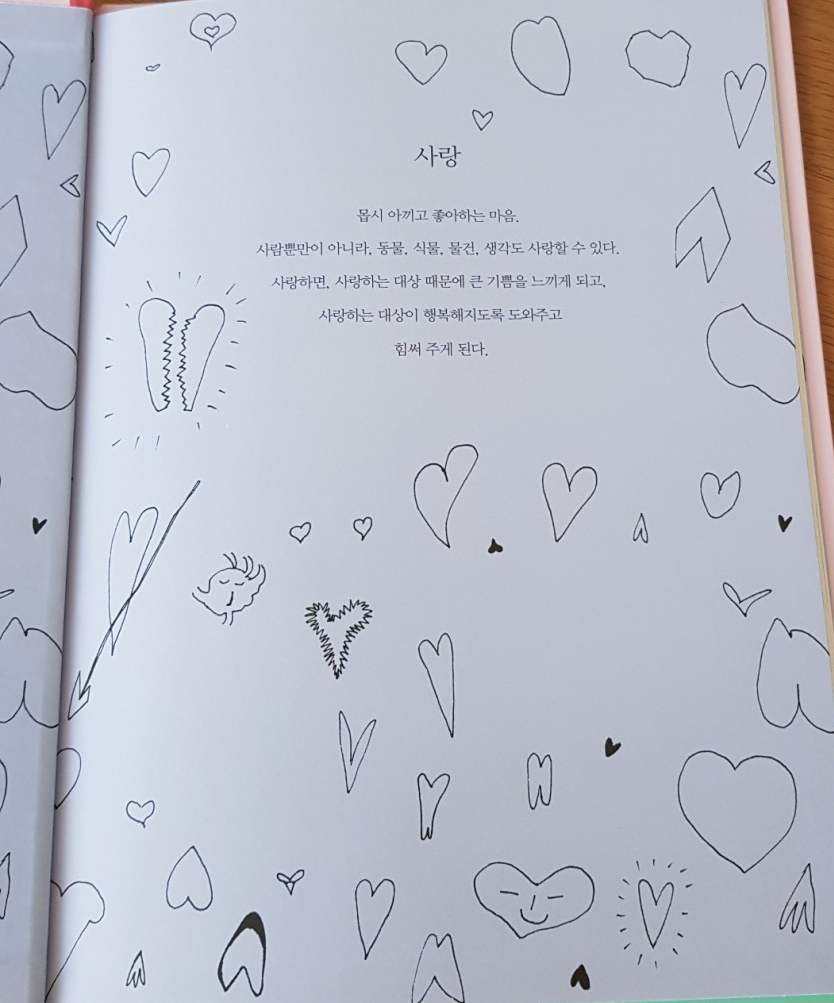 사랑
몹시 아끼고 좋아하는 마음.
사람뿐만이 아니라, 동물, 식물, 물건, 생각도 사랑할 수 있다.
사랑하면, 사랑하는 대상 때문에 큰 기쁨을 느끼게 되고,
사랑하는 대상이 행복해지도록 도와주고
힘써 주게 된다.